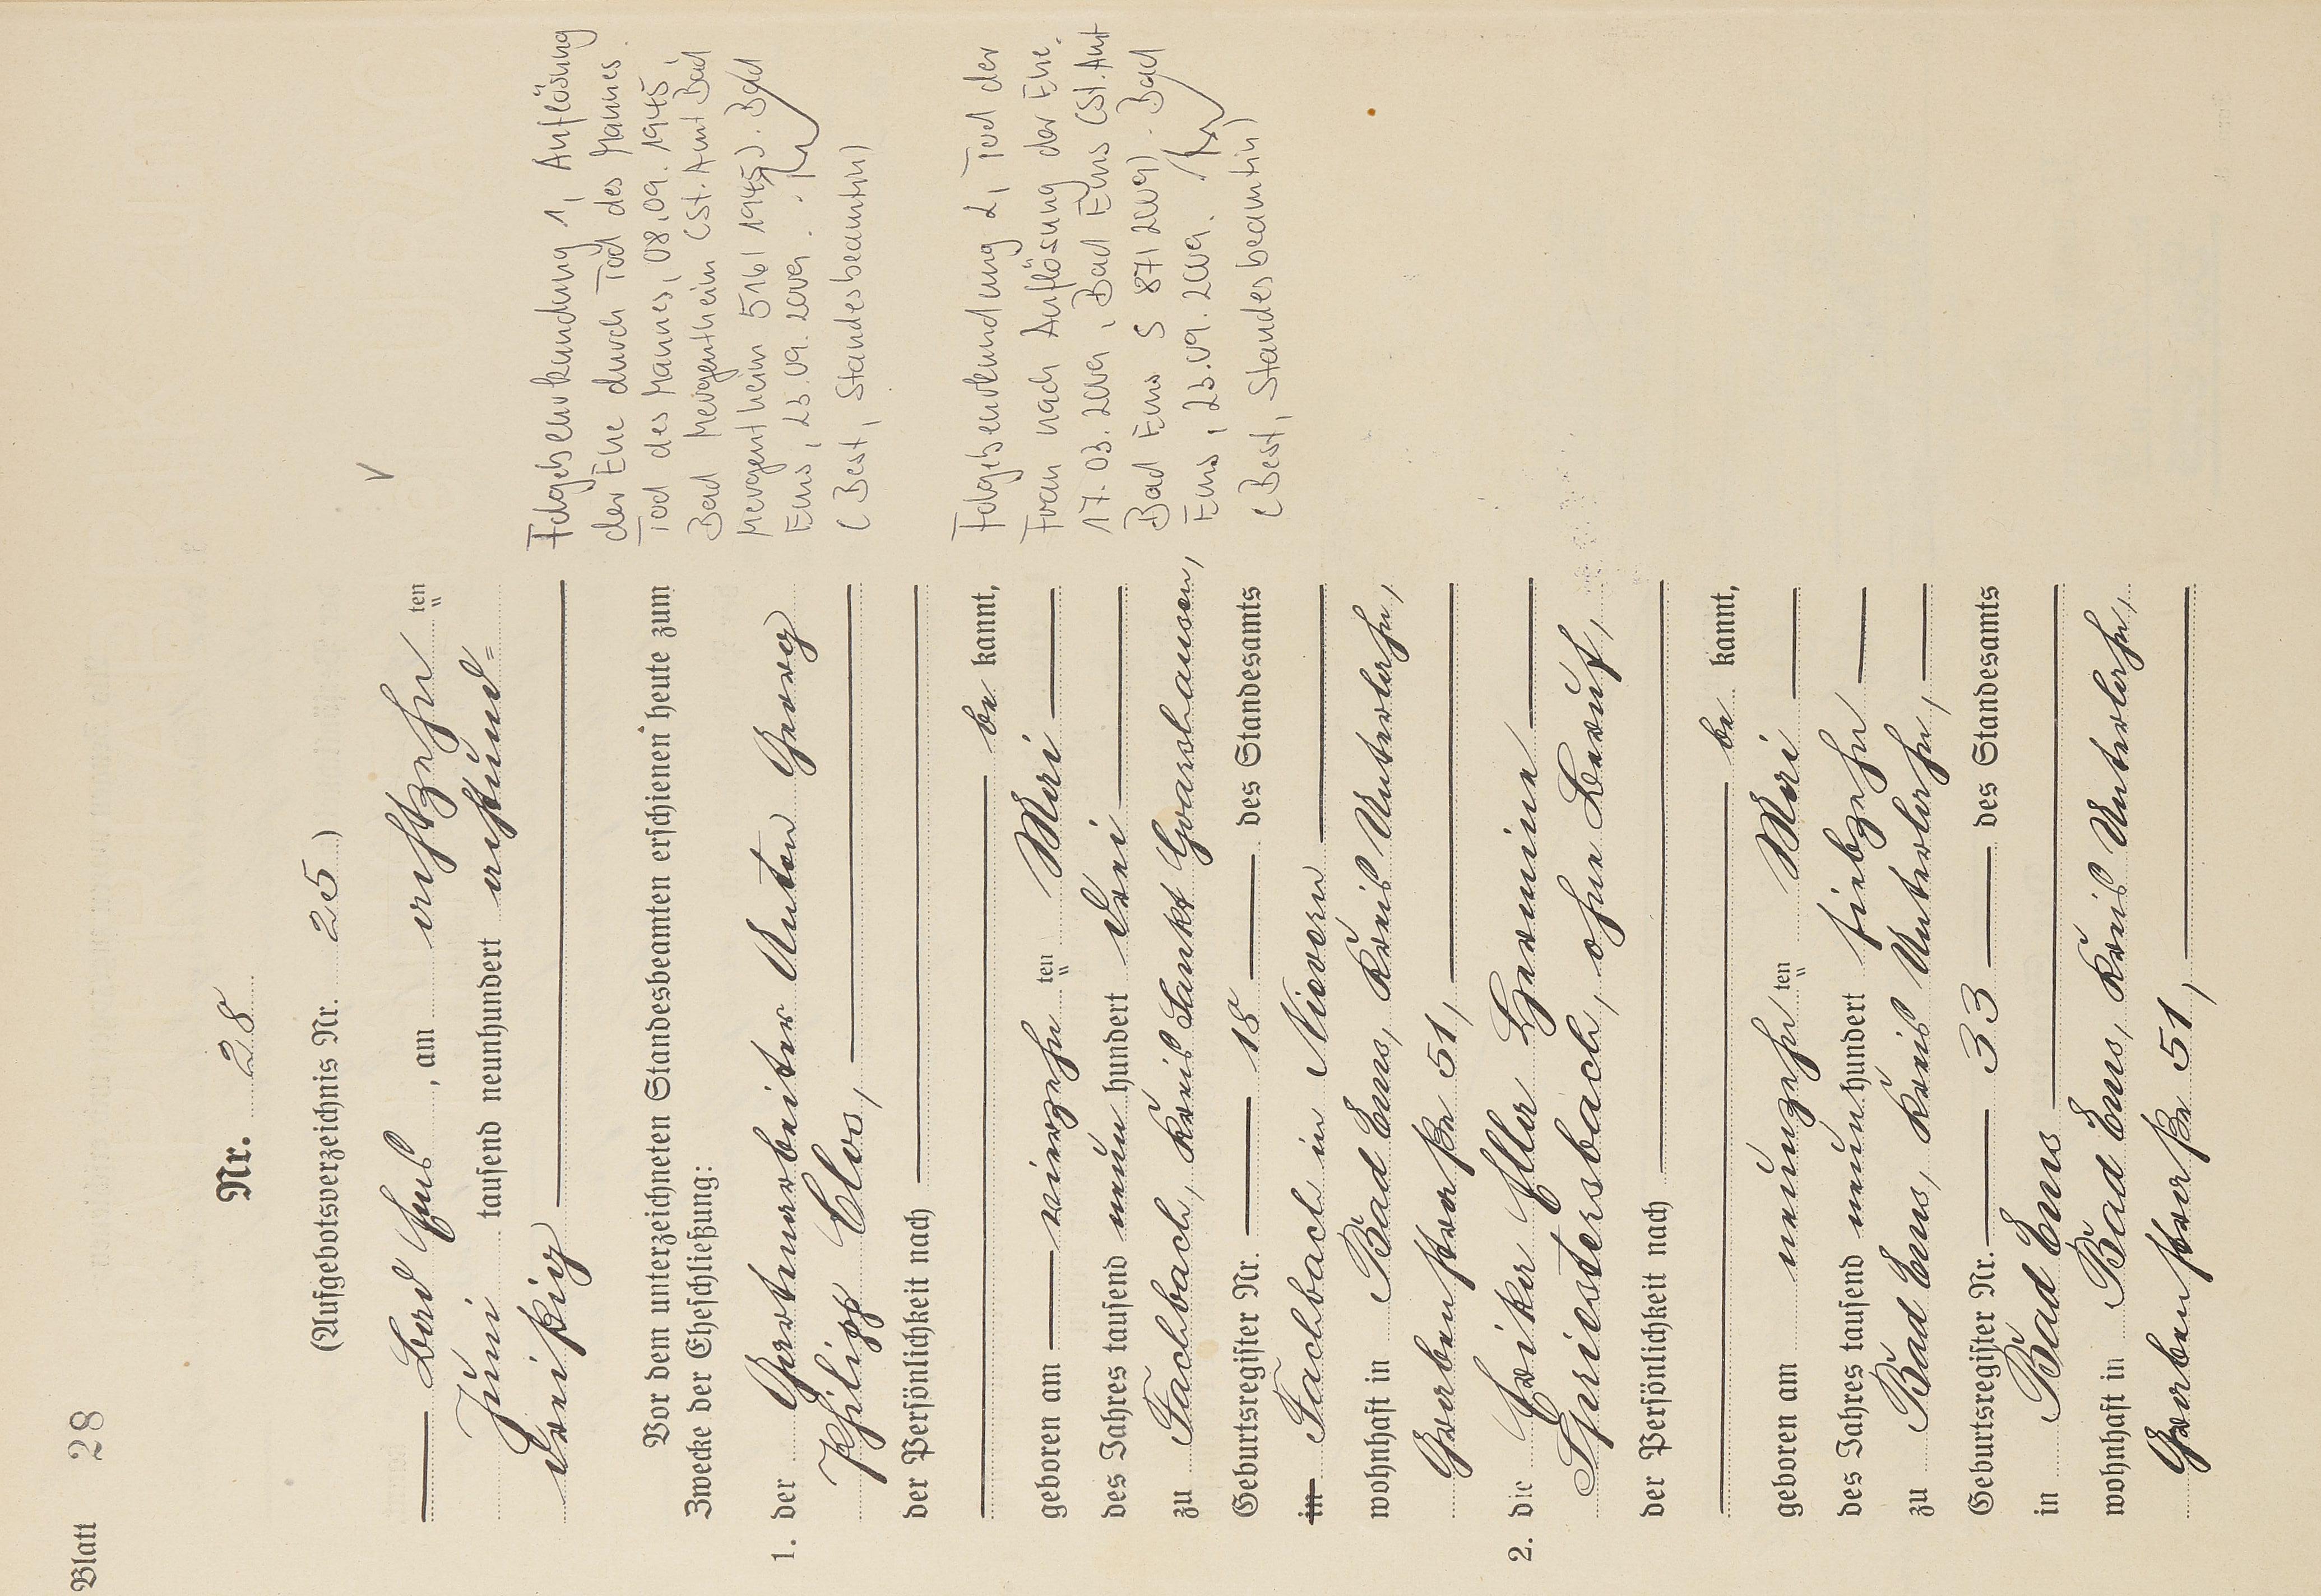 Blatt 28
Nr. 28
(Aufgebotsverzeichnis Nr. 25)
Bad Ems, am achtzehnten
Juni tausend neunhundert achtund=
dreißig
Vor dem unterzeichneten Standesbeamten erschienen heute zum
Zwecke der Eheschließung:
1. der Gartenarbeiter Anton Georg
Philipp Clos,
der Persönlichkeit nach
be kannt,
geboren am vierzehnten Mai
des Jahres tausend neun hundert drei
zu Fachbach, Kreis Sankt Goarshausen,
Geburtsregister Nr. 18 des Standesamts
in Fachbach in Nievern
wohnhaft in Bad Ems, Kreis Unterlahn,
Grabenstraße 51,
2. die Erika Ella Hermine
Spriestersbach, ohne Beruf,
der Persönlichkeit nach
be kannt,
geboren am neunzehnten Mai
des Jahres tausend neun hundert siebzehn
zu Bad Ems, Kreis Unterlahn,
Geburtsregister Nr. 33 des Standesamts
in Bad Ems
wohnhaft in Bad Ems, Kreis Unterlahn,
Grabenstraße 51,
Folgebeurkundung 1, Auflösung
der Ehe durch Tod des Mannes
Tod des Mannes, 08.09.1945,
Bad Mergentheim (St.Amt Bad
Mergentheim 516/1945). Bad
Ems, 23.09.2009.
(Best, Standesbeamtin)
Folgebeurkundung 2, Tod der
Frau nach Auflösung der Ehe.
17.03.2009, Bad Ems (St.Amt
Bad Ems S 87/2009). Bad
Ems, 23.09.2009.
(Best, Standesbeamtin)